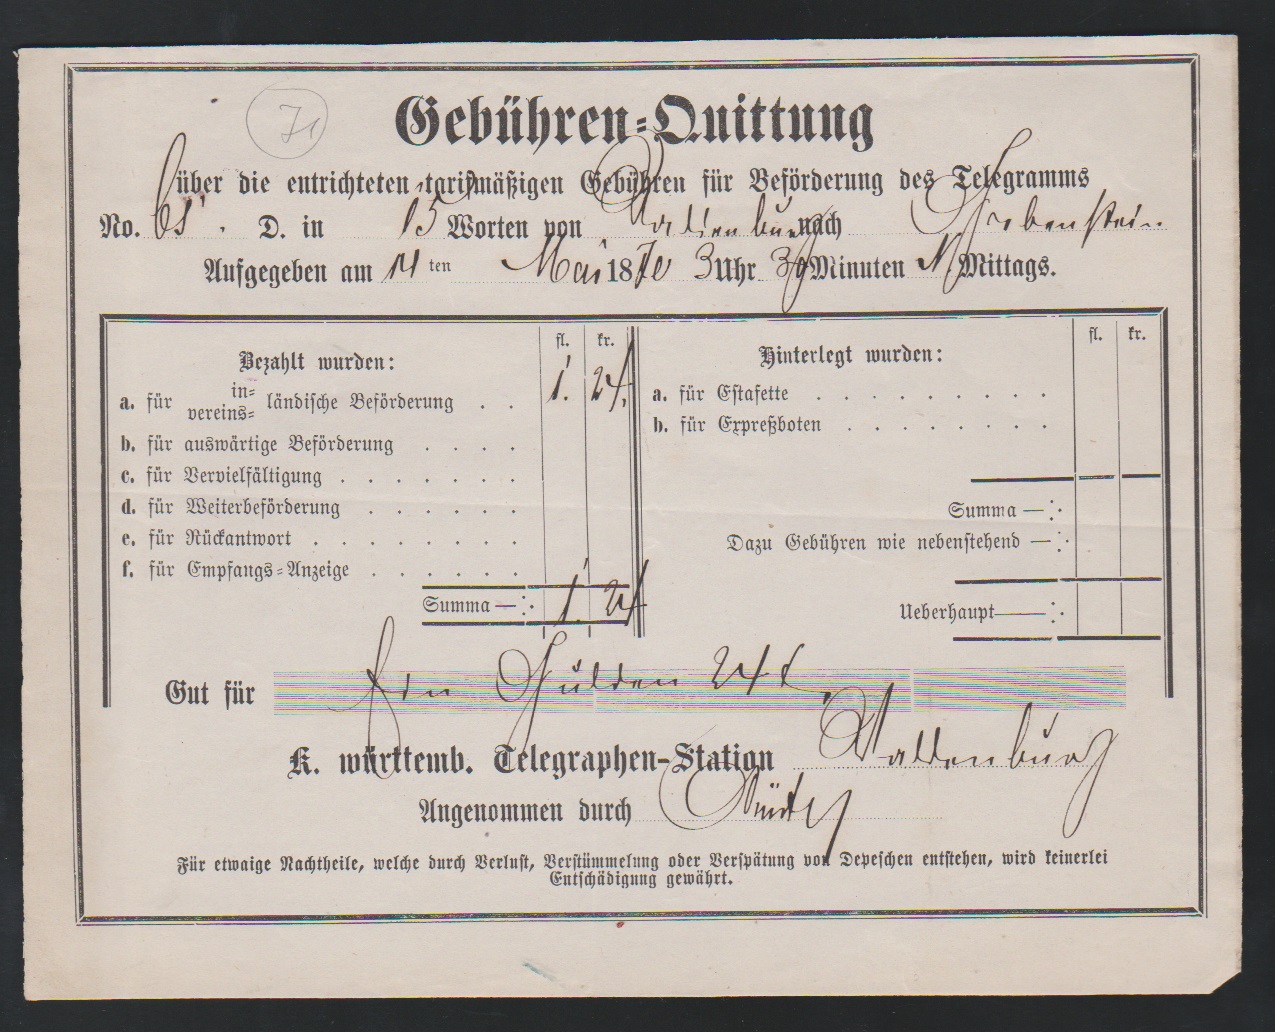 Gebühren-Quittung
über die entrichteten tarifmäßigen Gebühren für Beförderung des Telegramms
No. 65. D. in 15 Worten von Waldenburg nach Grebenstein
Aufgegeben am ten Mai 1870 3 Uhr 30 Minuten N. Mittags.
fl. kr.
Bezahlt wurden:
a. für in= vereins= ländische Beförderung . . 1. 24.
b. für auswärtige Beförderung . . . .
c. für Vervielfältigung . . . . . . .
d. für Weiterbeförderung . . . . . .
e. für Rückantwort . . . . . . . .
f. für Empfangs=Anzeige . . . . . .
Summa —: 1. 24
fl. kr.
Hinterlegt wurden:
a. für Estafette . . . . . . . . .
b. für Expreßboten . . . . . . . .
Summa —:
Dazu Gebühren wie nebenstehend —:
Ueberhaupt —:
Gut für Ein Gulden 24 x.
K. württemb. Telegraphen-Station Waldenburg
Angenommen durch
Für etwaige Nachtheile, welche durch Verlust, Verstümmelung oder Verspätung von Depeschen entstehen, wird keinerlei
Entschädigung gewährt.